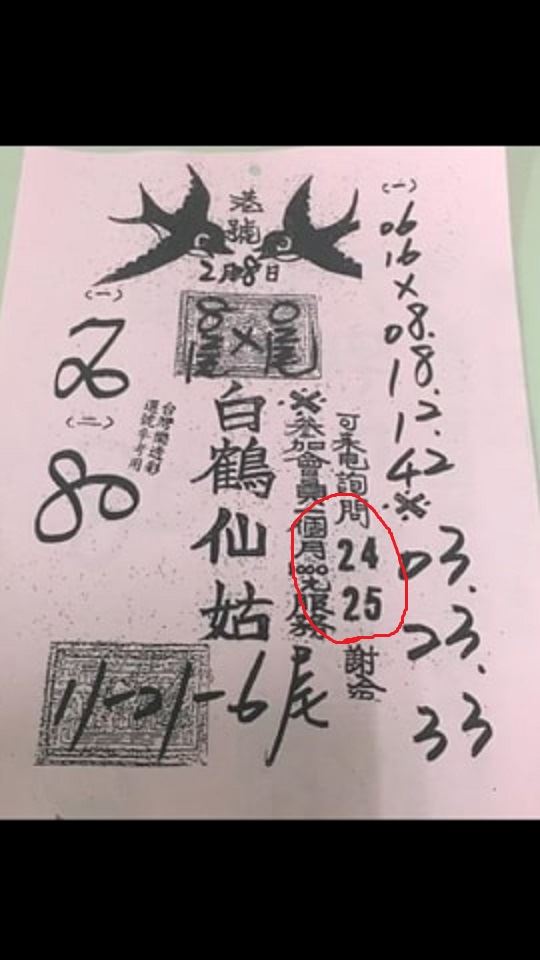 港號
2月8日
(一)
06
16
×
08.
18.
12.
42
※
03.
23.
33
(一)
(二)
80
台灣樂透彩
選號參考用
白鶴仙姑
※參加會員一個月
服務
可來电詢問
24
25
謝洽
11-21-6尾